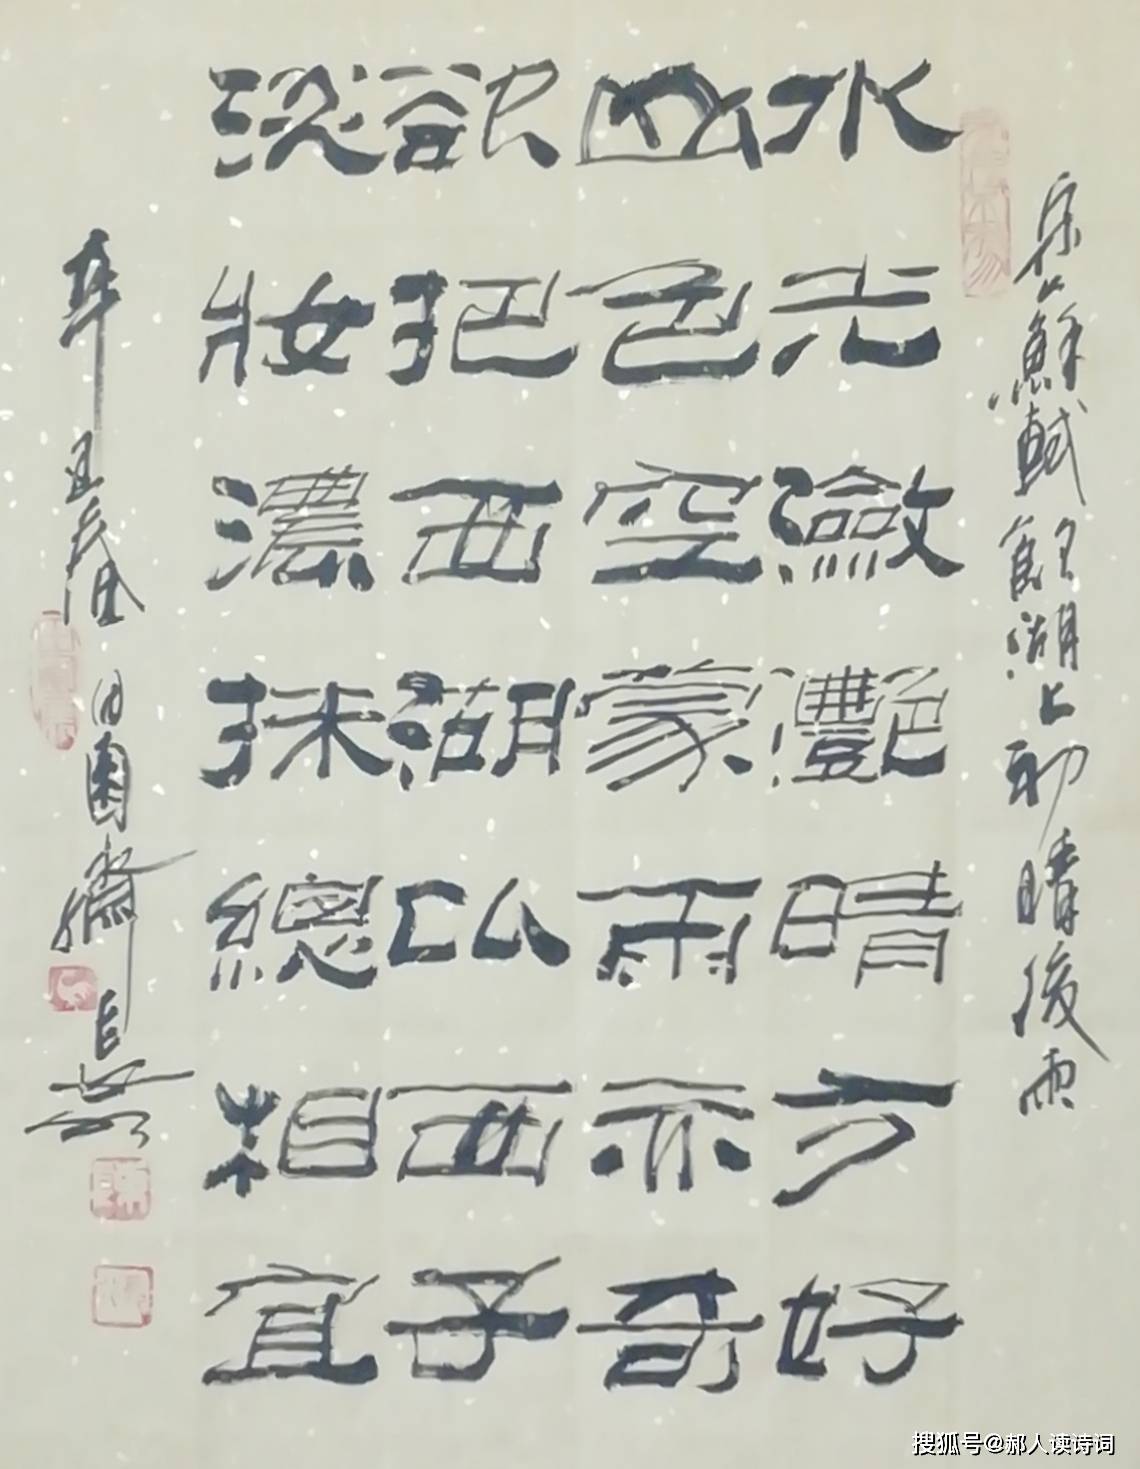 宋人蘇軾飲湖上初晴後雨
水光瀲灧晴方好
山色空蒙雨亦奇
欲把西湖以西子
淡妝濃抹總相宜
辛丑春
搜狐号@郝人读诗词